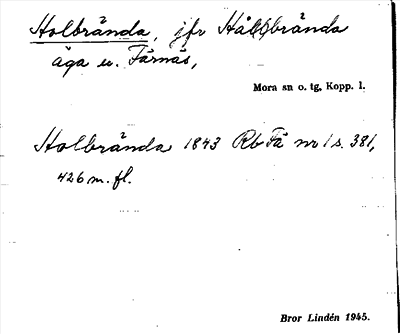 Holbrända, jfr Hål(l)brända
äga u. Färnäs,
Mora sn o. tg, Kopp. l.
Holbrända 1843 Rb Fä nr 1 s. 381,
426 m. fl.
Bror Lindén 1945.